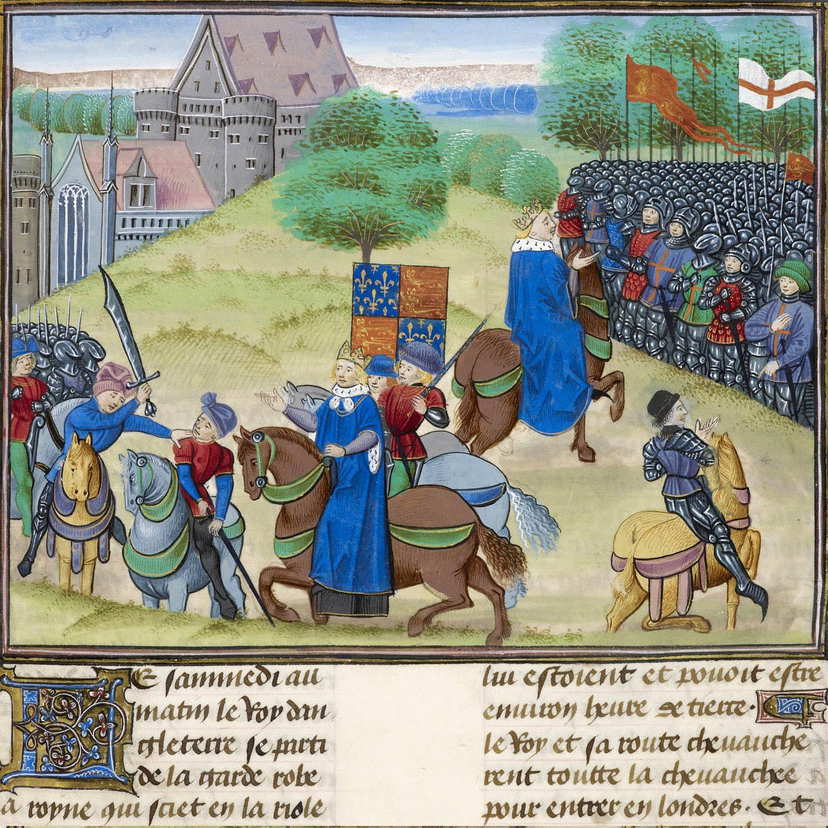 Le sammedi au
matin le Roy dan
gleterre se parti
de la garde robe
a royne qui sciet en la riole
lui estoient et pouoit estre
enuiron heure de tierce.
le Roy et sa route cheuauche
rent toutte la cheuauchee
pour entrer en londres. Et